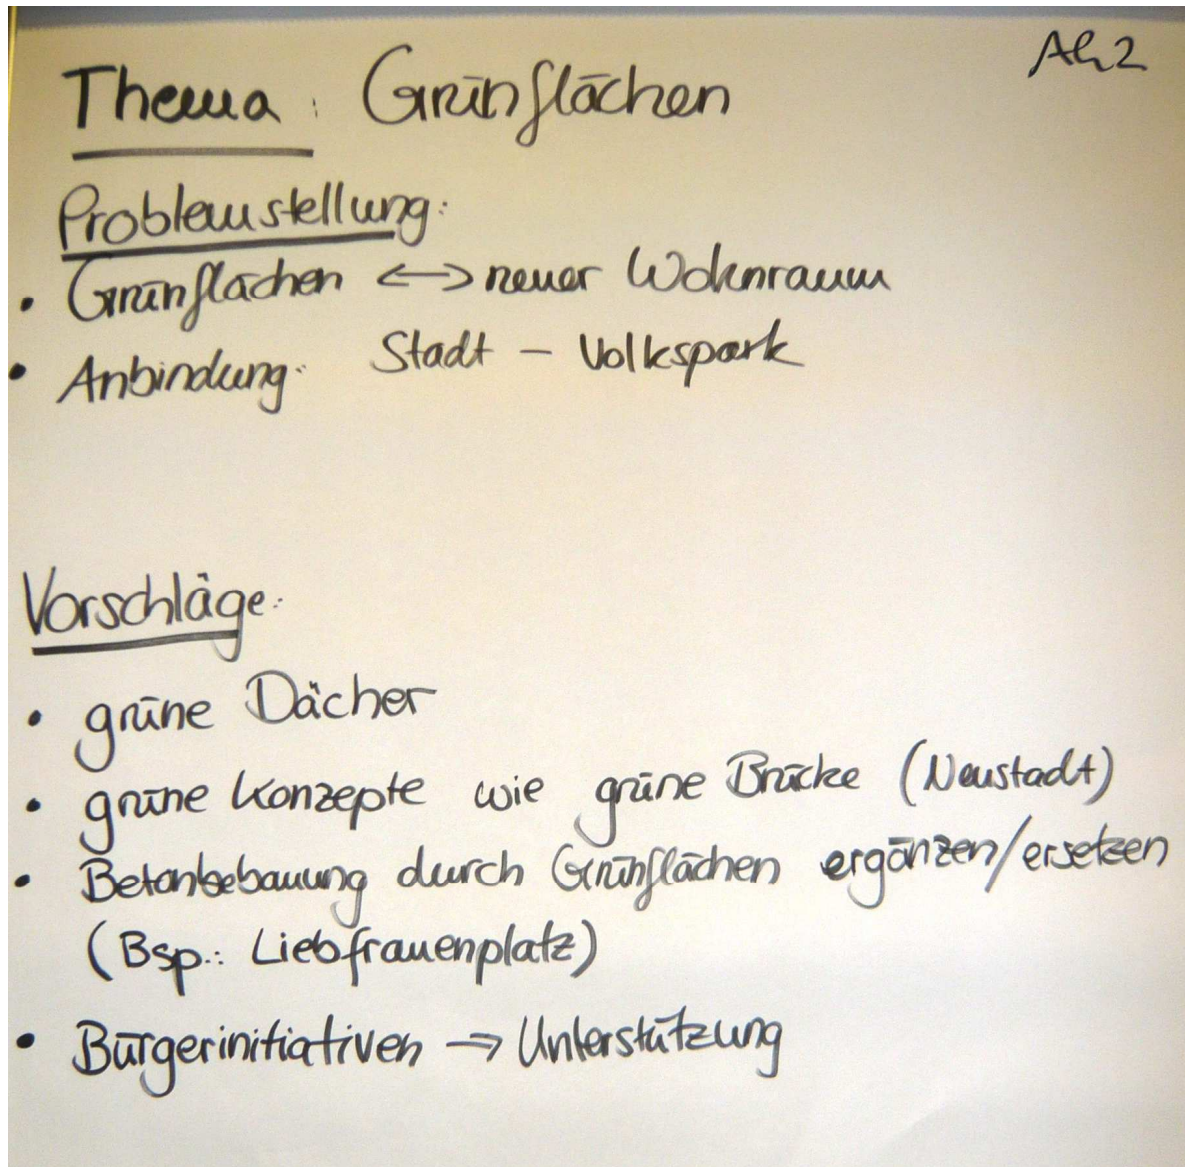 AG 2
Thema: Grünflächen
Problemstellung:
• Grünflächen <-> neuer Wohnraum
• Anbindung: Stadt – Volkspark
Vorschläge:
• grüne Dächer
• grüne Konzepte wie grüne Brücke (Neustadt)
• Betonbebauung durch Grünflächen ergänzen/ersetzen
(Bsp.: Liebfrauenplatz)
• Bürgerinitiativen => Unterstützung